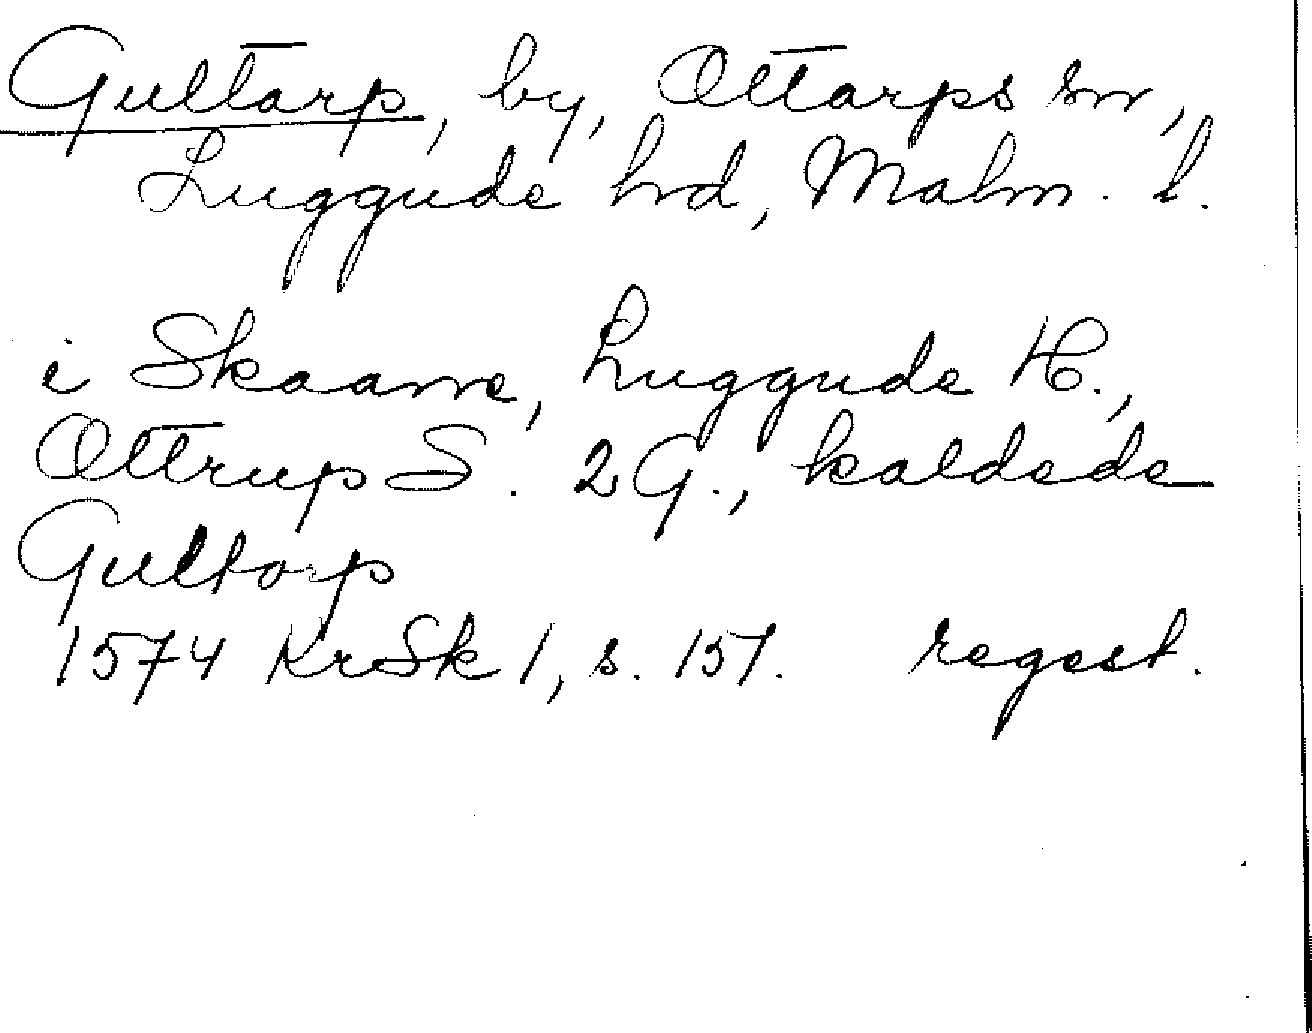 Gultarp, by, Ottarps sn,
Luggude hrd, Malm. l.
i Skaane, Luggude H.,
Ottrup S. 2 G., kaldede
Gultorp
1574 KrSk 1, s. 157. regest.